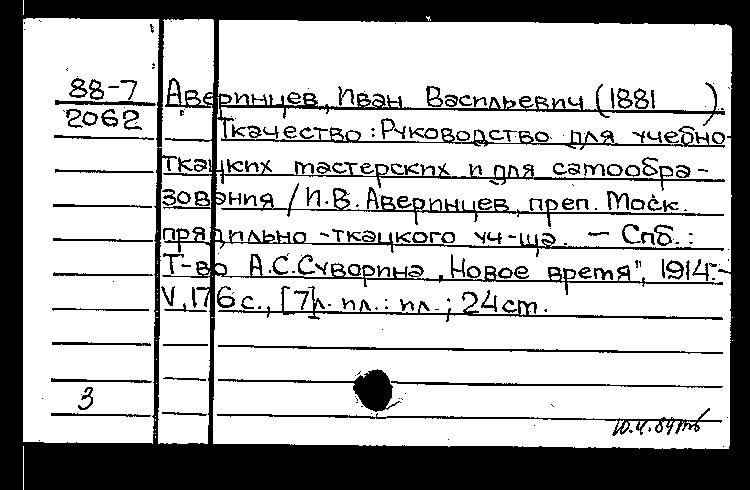 88-7
2062
Аверинцев, Иван Васильевич (1881 ).
Ткачество: Руководство для учебно-
ткацких мастерских и для самообра-
зования / И.В. Аверинцев, преп. Моск.
прядильно-ткацкого уч-ща. — Спб.:
Т-во А.С.Суворина „Новое время", 1914.-
V, 176 с., [7]л. ил.: ил.; 24 см.
3